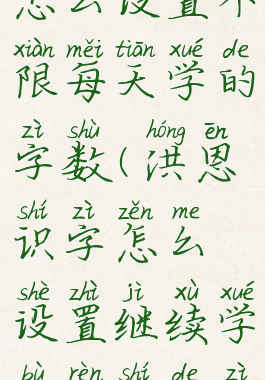 怎么设置不
xiàn měi tiān xué de
限每天学的
zì shù hóng ēn
字数(洪恩
shí zì zěn me
识字怎么
shè zhì jì xù xué
设置继续学
bù rèn shí de zì